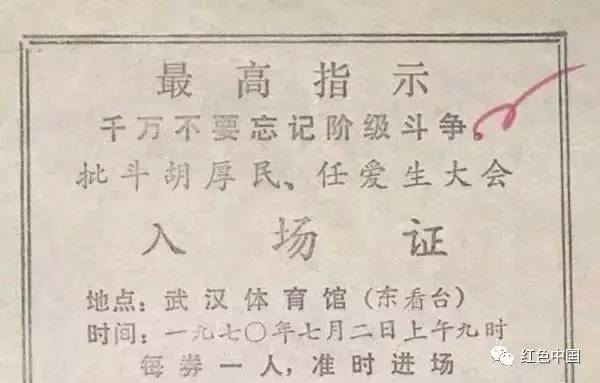 最高指示
千万不要忘记阶级斗争。
批斗胡厚民、任爱生大会
入场证
地点：武汉体育馆（东看台）
时间：一九七〇年七月二日上午九时
每券一人，准时进场
红色中国